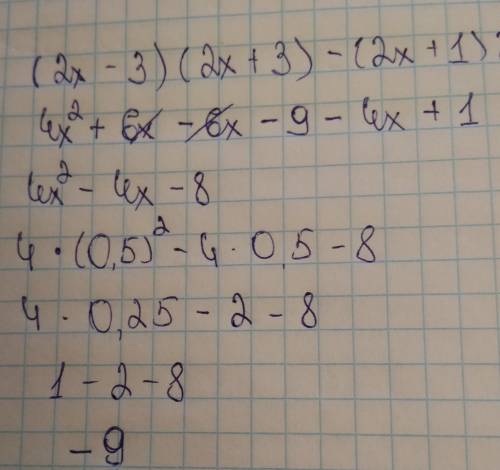 (2x - 3)(2x + 3) - (2x + 1)²
4x² + 6x - 6x - 9 - 4x + 1
4x² - 4x - 8
4 · (0,5)² - 4 · 0,5 - 8
4 · 0,25 - 2 - 8
1 - 2 - 8
- 9